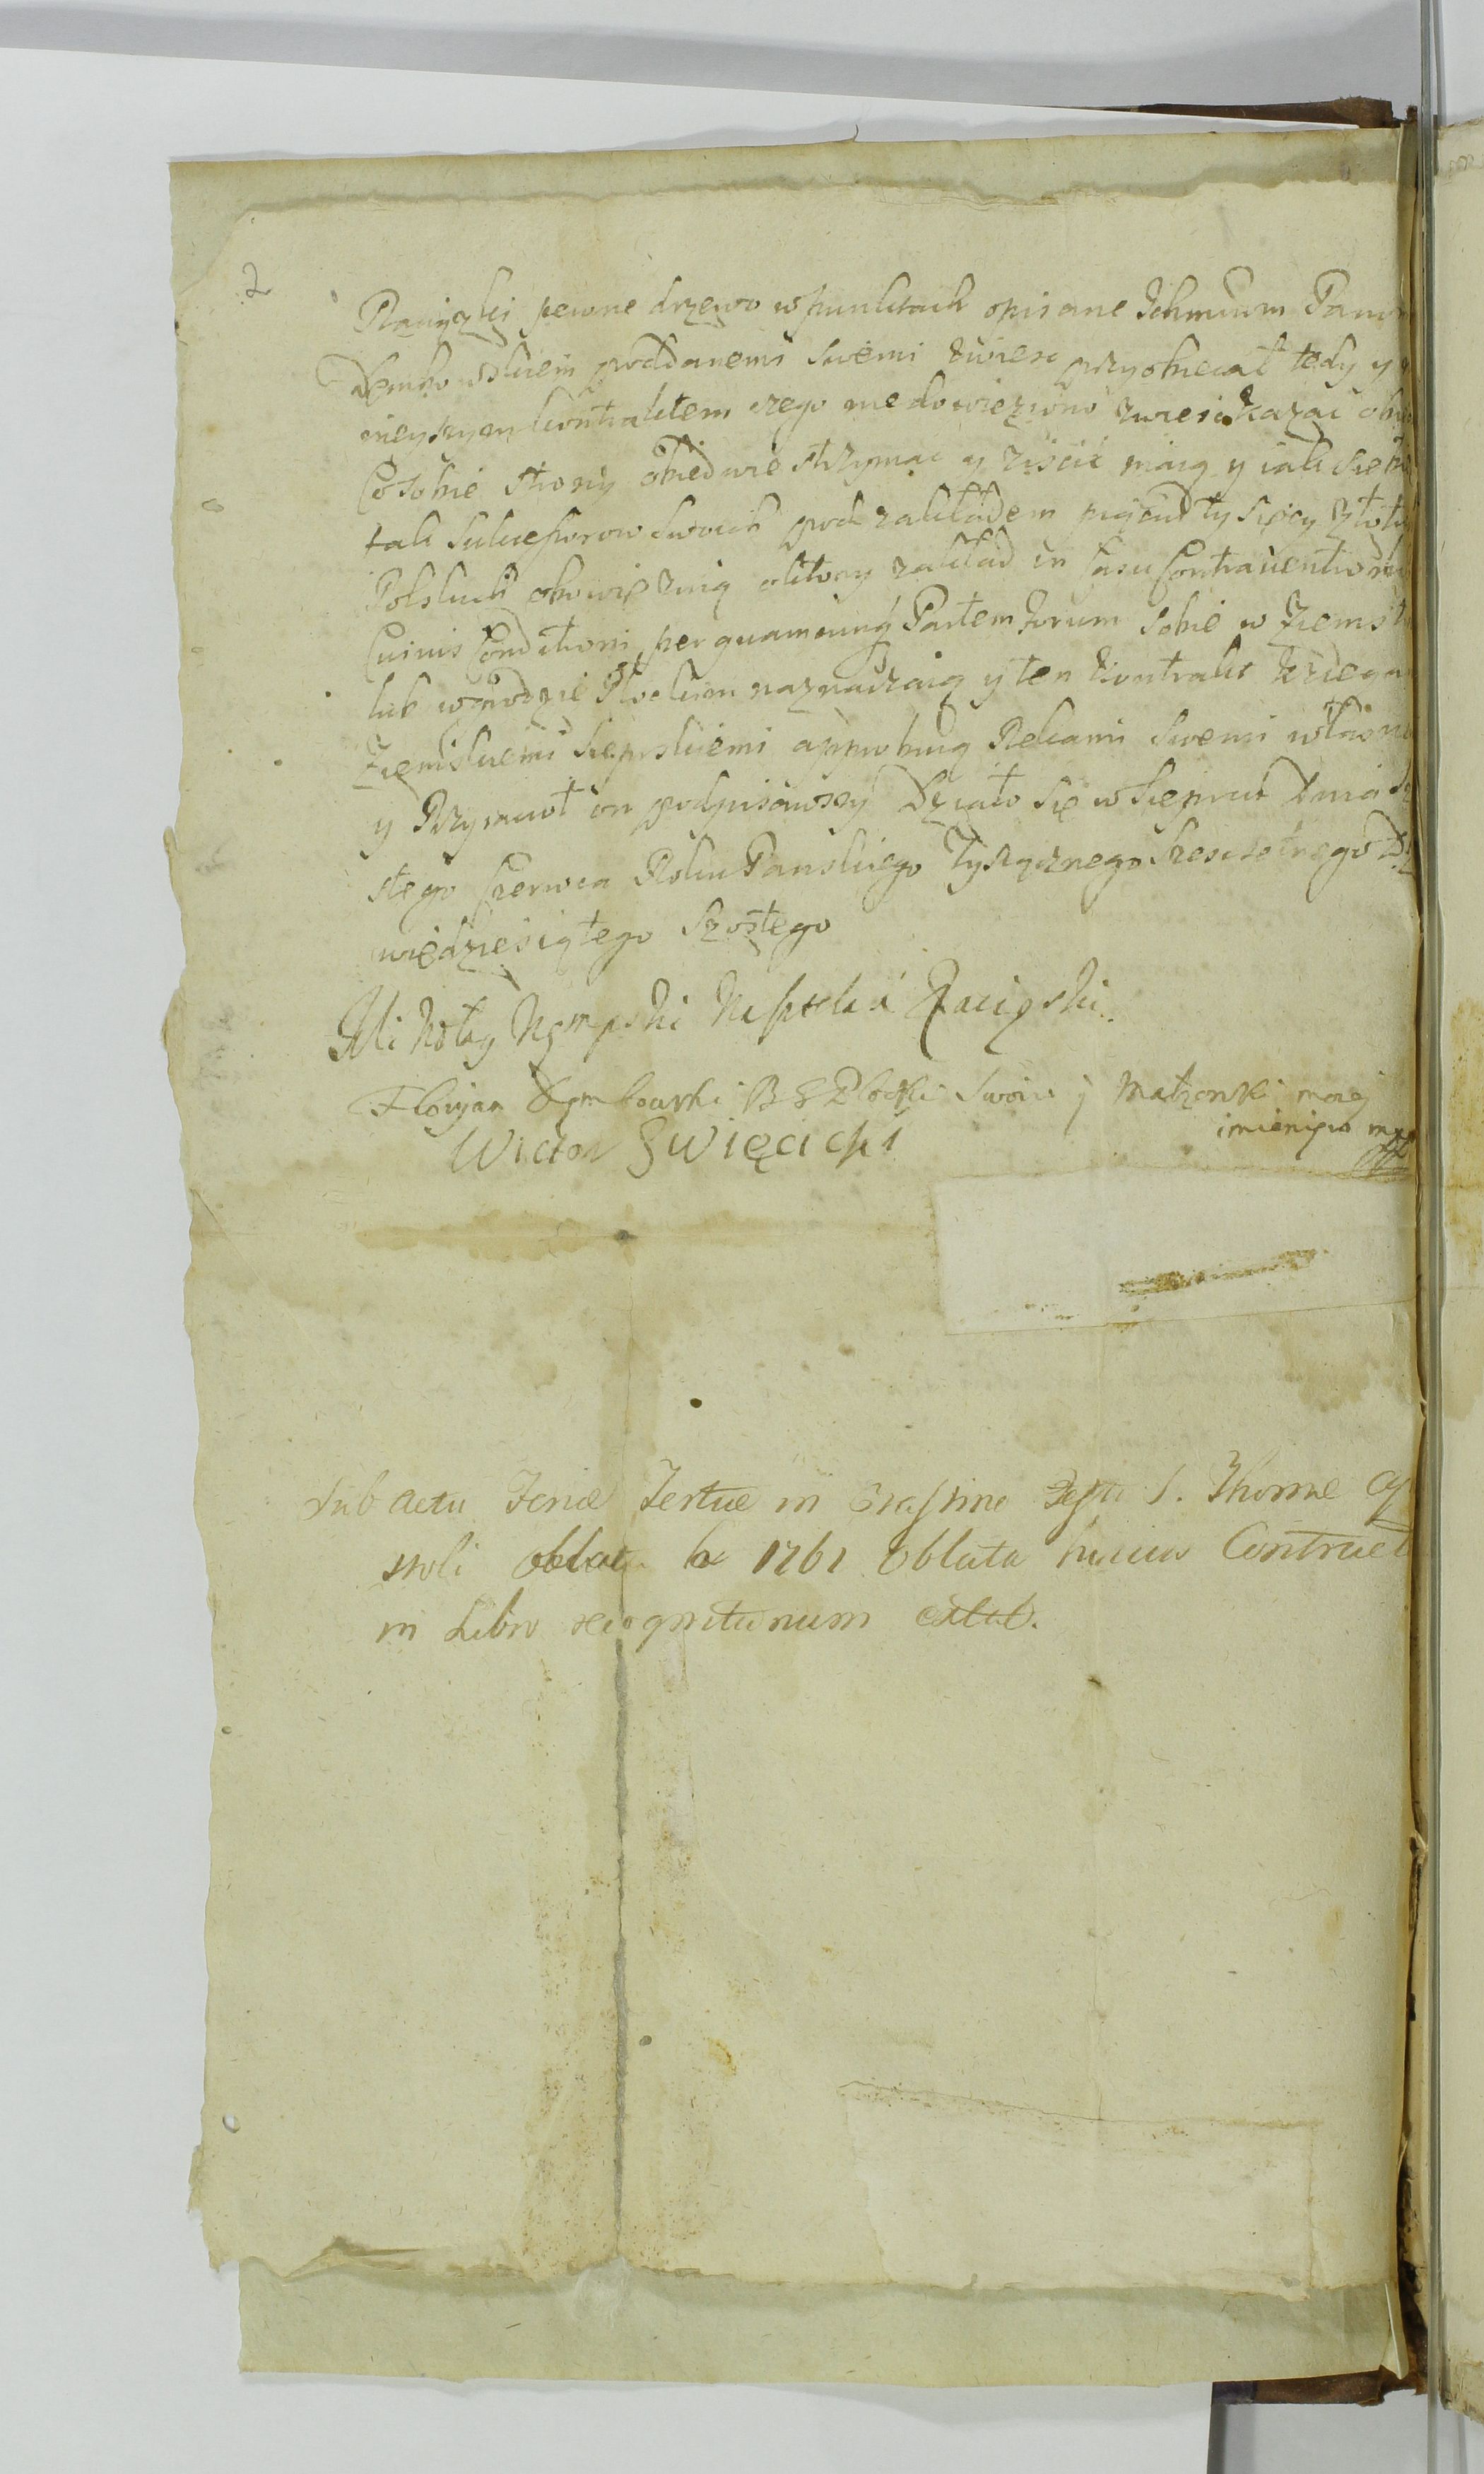 2
Raciązki pewne drzewo w punktach opisane Jchmciom Panom
Dembowskiem poddanemi swemi zwiesc przyobiecał tedy y
nieyszym kontraktem czego niedowieziono zwiesc kazac obie
Co sobie strony obiedwie strzymac y ziścić maią y iak siebie
tak sukcessorow swoich pod zakładem pięciu tysięcy złotych
Polskich obowięzuią o ktory zakład in casu Contraventionis
Cuiuis Conditioni per quamcunq Partem Forum sobie w Ziemst
lub w Grodzie Płockim naznaczaią y ten kontrakt Xięga
Ziemskiemi Sieprskiemi approbuią Rękami swemi własne
y Przyiacioł on podpisawszy Działo się w Sieprcu Dnia
stego Czerwca Roku Panskiego Tysiącznego Szescsetnego Dz
więdziesiątego Szostego
Mikołay Kępski Kasztelan Raciąski
Floryan Dęmbowski P S Płocki Swoim j Małzonki moiej
imieniem mp
Wictor Swięcicki
Sub actu Feriæ Tertiæ in Crastino Festi S. Thomæ Ap
stoli 1761 Oblata huius Contract
in Libro recognitionum extat.